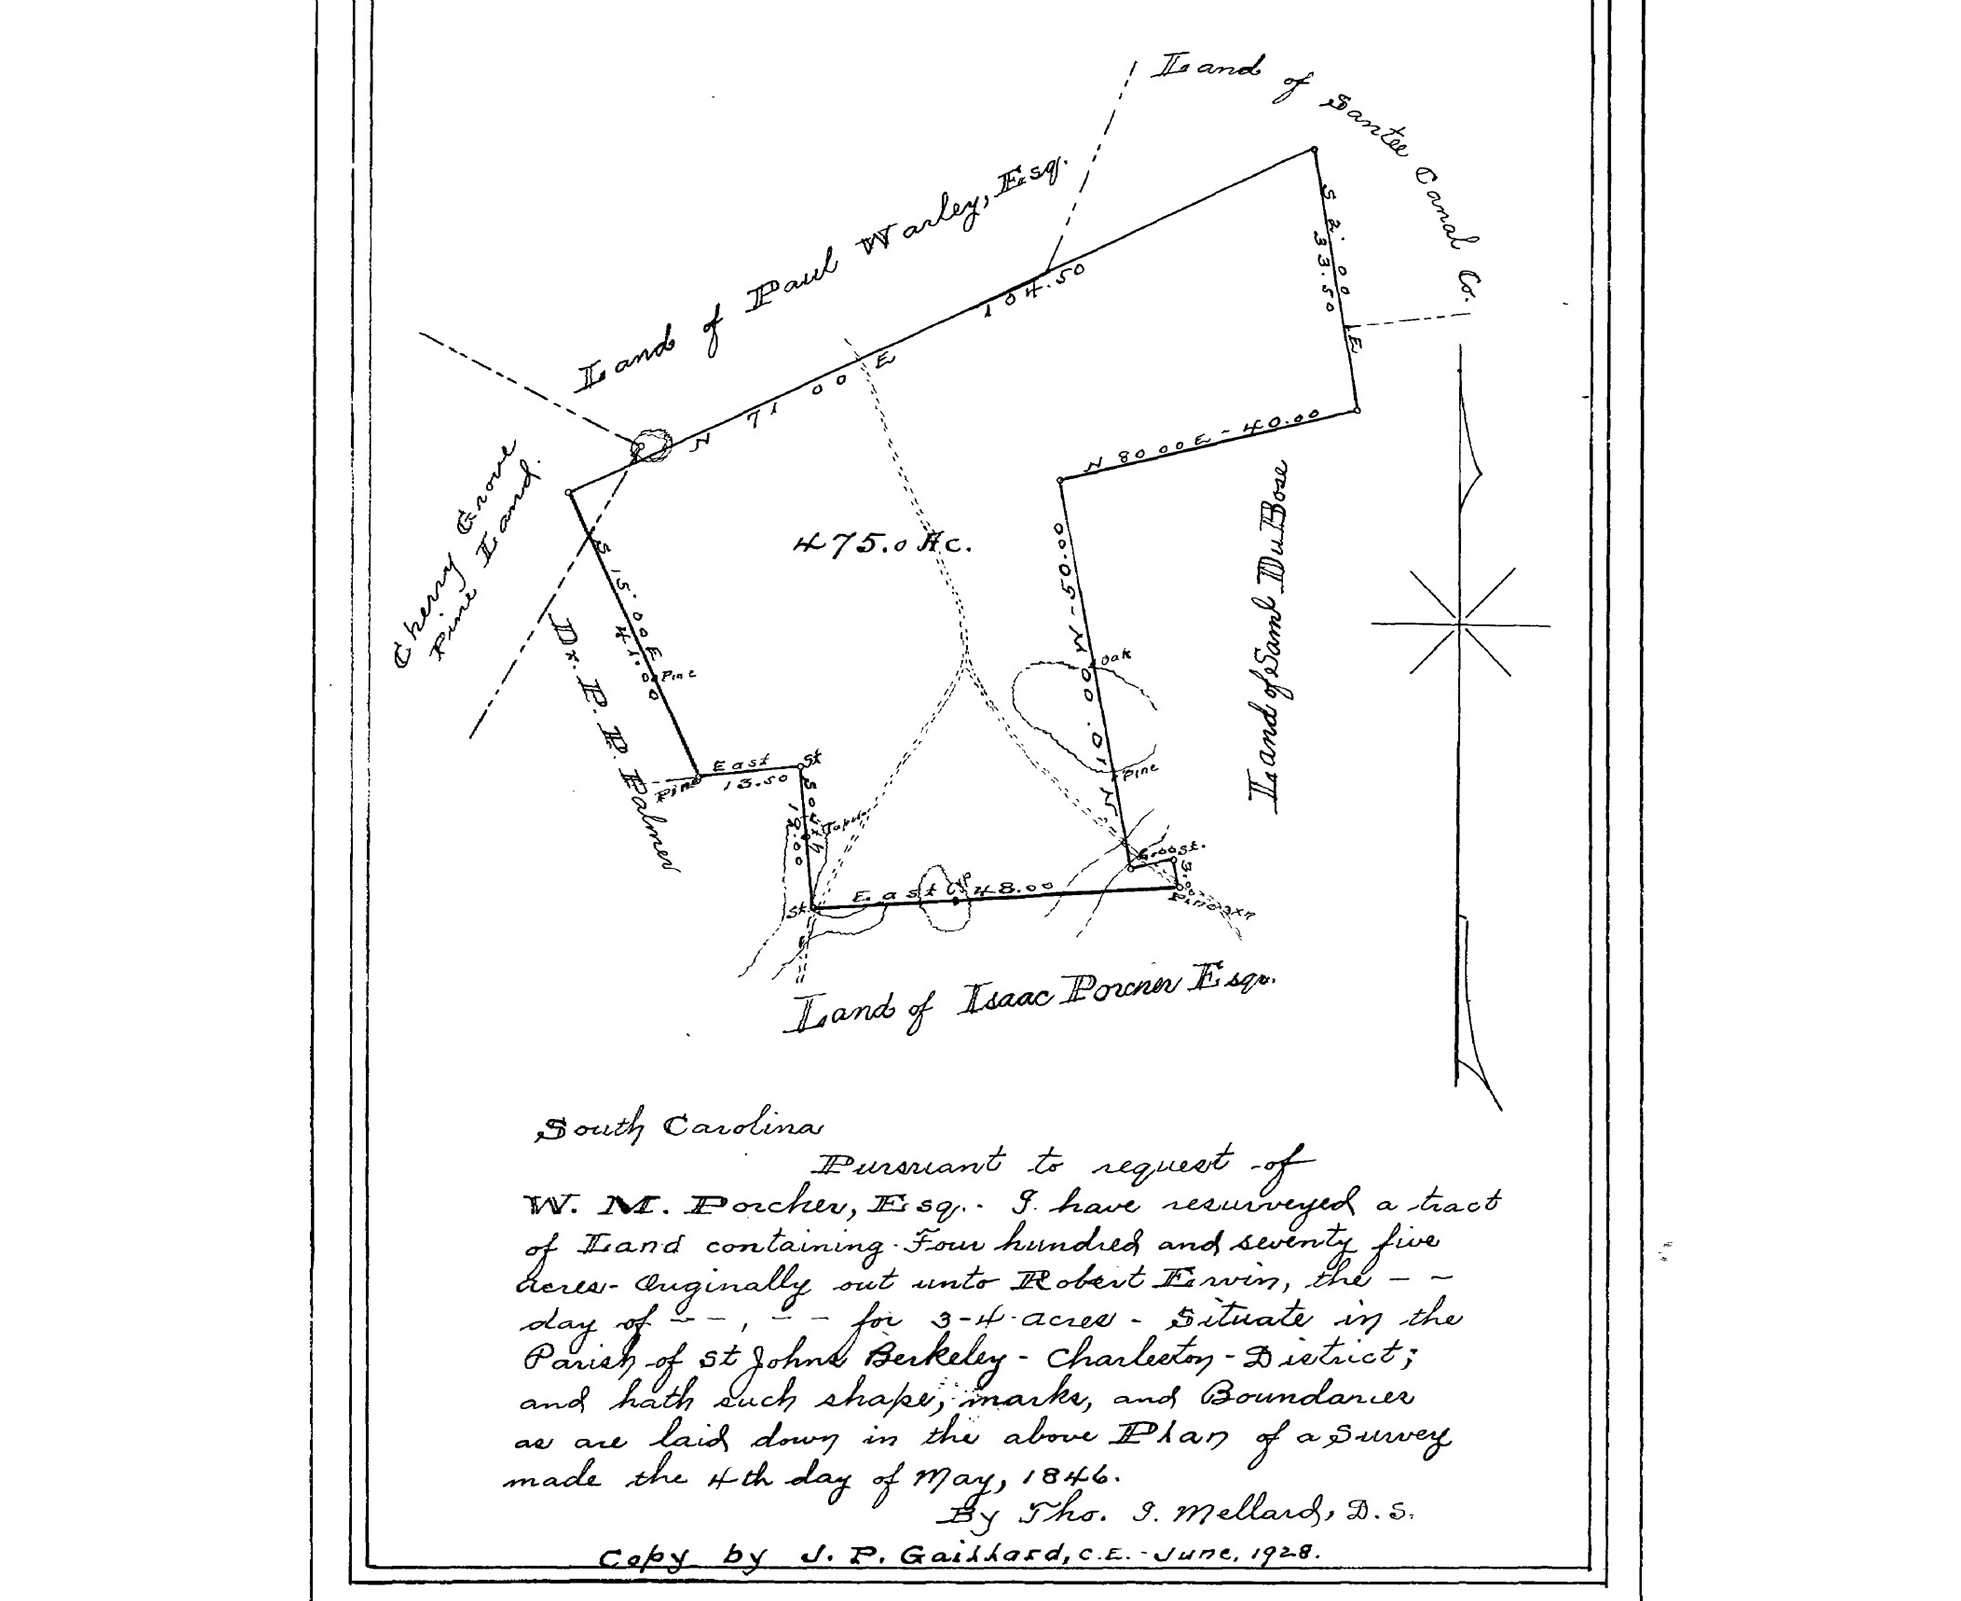 Land of Santee Canal Co.
Land of Paul Warley, Esq.
S 2.00 E
33.50
N 71 00 E
104.50
N 80 00 E - 40.00
Cherry Grove
Pine Land.
475.0 Ac.
S 15.00 E
41.00
Pine
Dr. P. P. Palmer
N 10.00 W - 50.00
Oak
Pine
Land of Saml DuBose
East
13.50
St
Pine
South
19.00
St
East 48.00
Cyp
6.00 St.
3.00
Pine 3xn
Land of Isaac Porcher Esqr.
South Carolina
Pursuant to request of
W. M. Porcher, Esq. I have resurveyed a tract
of Land containing Four hundred and seventy five
acres - Originally out unto Robert Ervin, the - -
day of - - , - - for 3-4 acres - Situate in the
Parish of St Johns Berkeley - Charleston - District;
and hath such shape, marks, and Boundaries
as are laid down in the above Plan of a Survey
made the 4th day of May, 1846.
By Tho. J. Mellard, D.S.
Copy by J. P. Gaillard, C.E. - June, 1928.